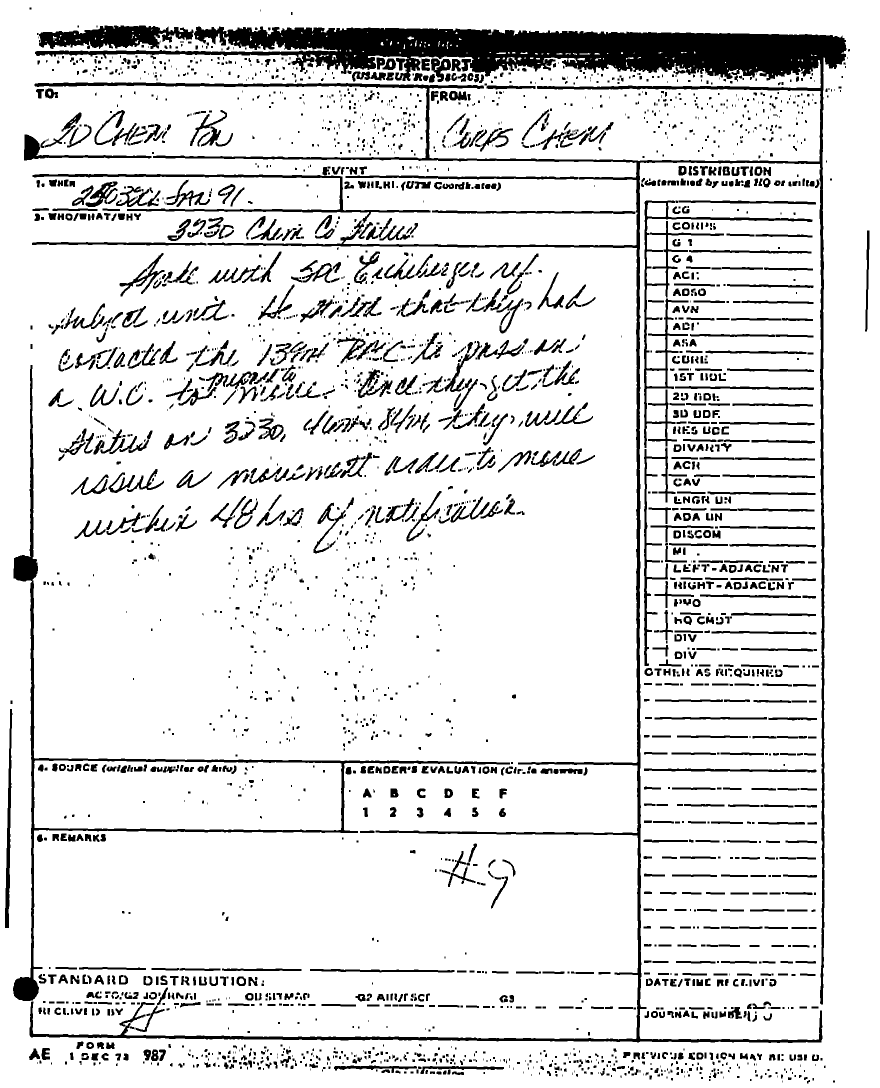 SPOT REPORT
(USAREUR Reg 380-205)
TO:
FROM:
2D CHEM BN
CORPS CHEM
EVENT
DISTRIBUTION
(determined by using HQ or units)
1. WHEN
JAN 91
2. WHERE (UTM Coordinates)
3. WHO/WHAT/WHY
323D Chem Co Status
Spoke with SPC Eicheberger ref.
subject unit. He stated that they had
contacted the 13th to pass on
a W.O. to prepare to move. Once they get the
status on 323D, 46th, 84th, they will
issue a movement order to move
within 48 hrs of notification.
CG
CORPS
G 1
G 4
ACE
ADSO
AVN
ADE
ASA
CBRE
1ST BDE
2D BDE
3D BDE
RES BDE
DIVARTY
ACR
CAV
ENGR BN
ADA BN
DISCOM
MI
LEFT-ADJACENT
RIGHT-ADJACENT
PMO
HQ CMDT
DIV
DIV
OTHER AS REQUIRED
4. SOURCE (original supplier of info)
5. SENDER'S EVALUATION (Circle answers)
A B C D E F
1 2 3 4 5 6
6. REMARKS
#9
STANDARD DISTRIBUTION:
ACTO/G2 JOURNAL OB SITMAP G2 AIR/FSCE G3
RECEIVED BY
DATE/TIME RECEIVED
JOURNAL NUMBER
AE FORM 1 DEC 73 987
PREVIOUS EDITION MAY BE USED.
Classification